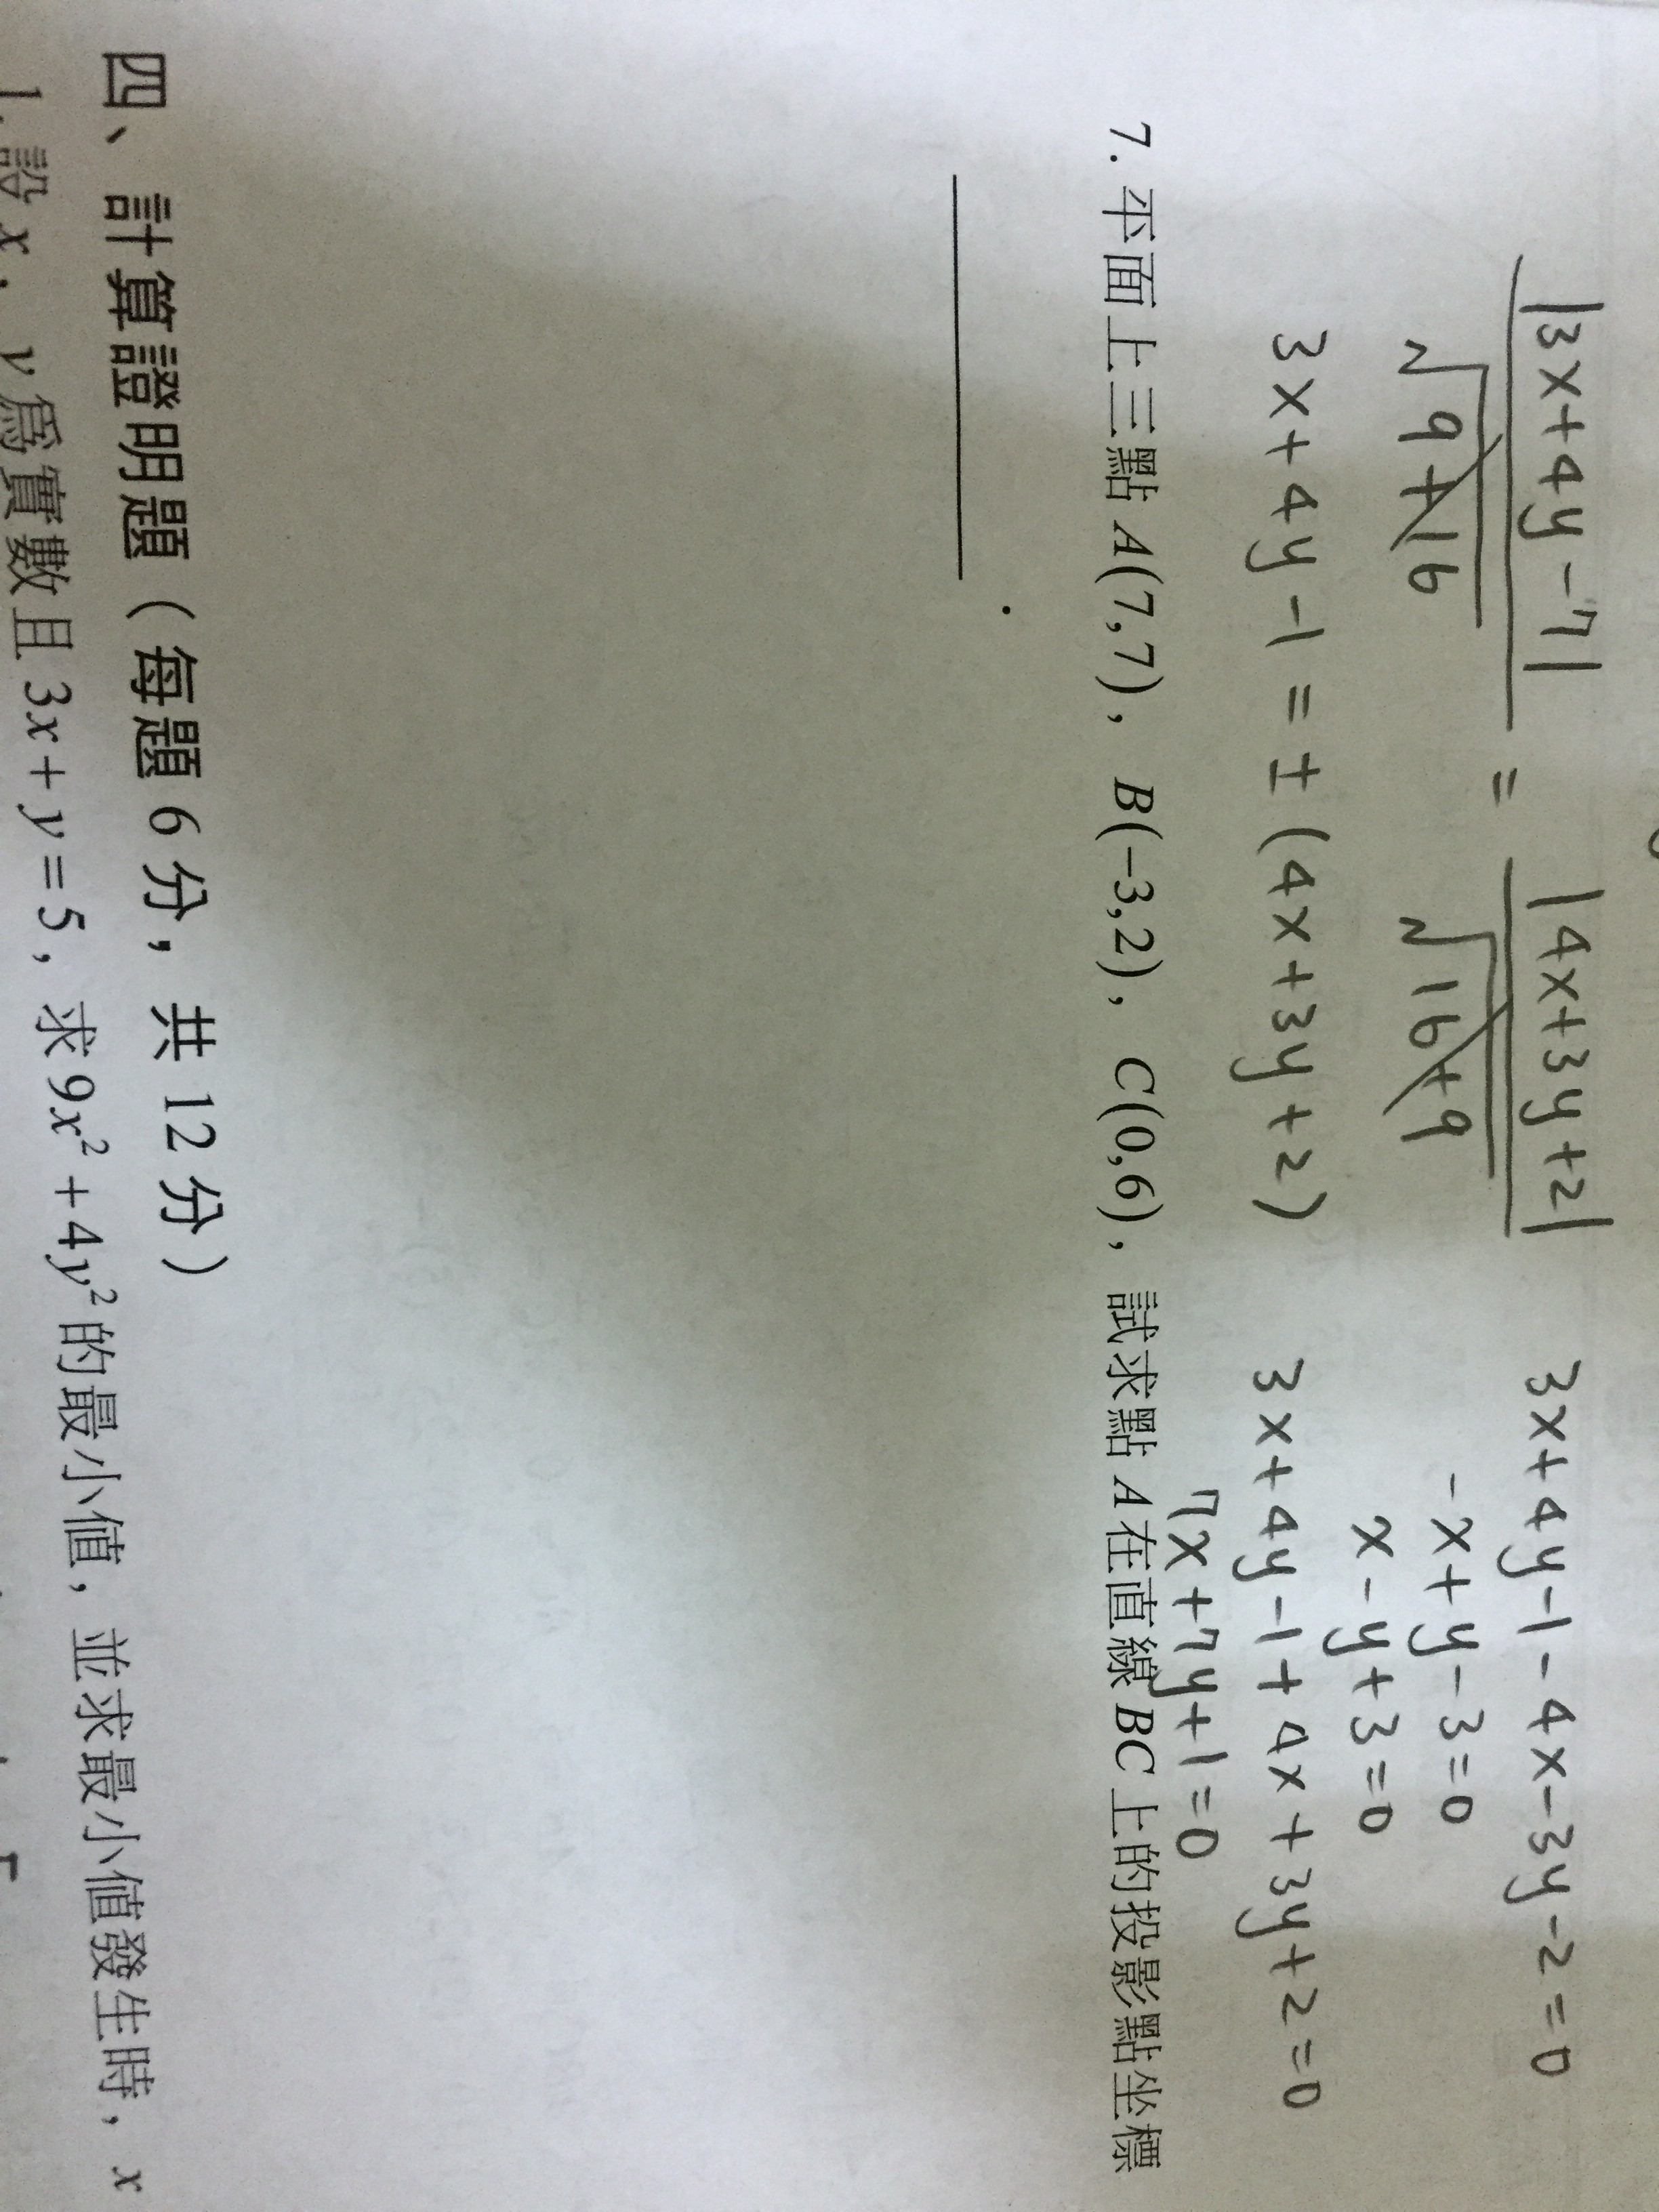 |3x+4y-7| = |4x+3y+2| 3x+4y-1-4x-3y-2=0
√9+16 √16+9 -x+y-3=0
x-y+3=0
3x+4y-1=±(4x+3y+2) 3x+4y-1+4x+3y+2=0
7x+7y+1=0
7. 平面上三點 A(7,7), B(-3,2), C(0,6), 試求點 A 在直線 BC 上的投影點坐標
.
四、計算證明題(每題 6 分, 共 12 分)
1. 設 x、y 為實數且 3x+y=5, 求 9x²+4y² 的最小值, 並求最小值發生時, x